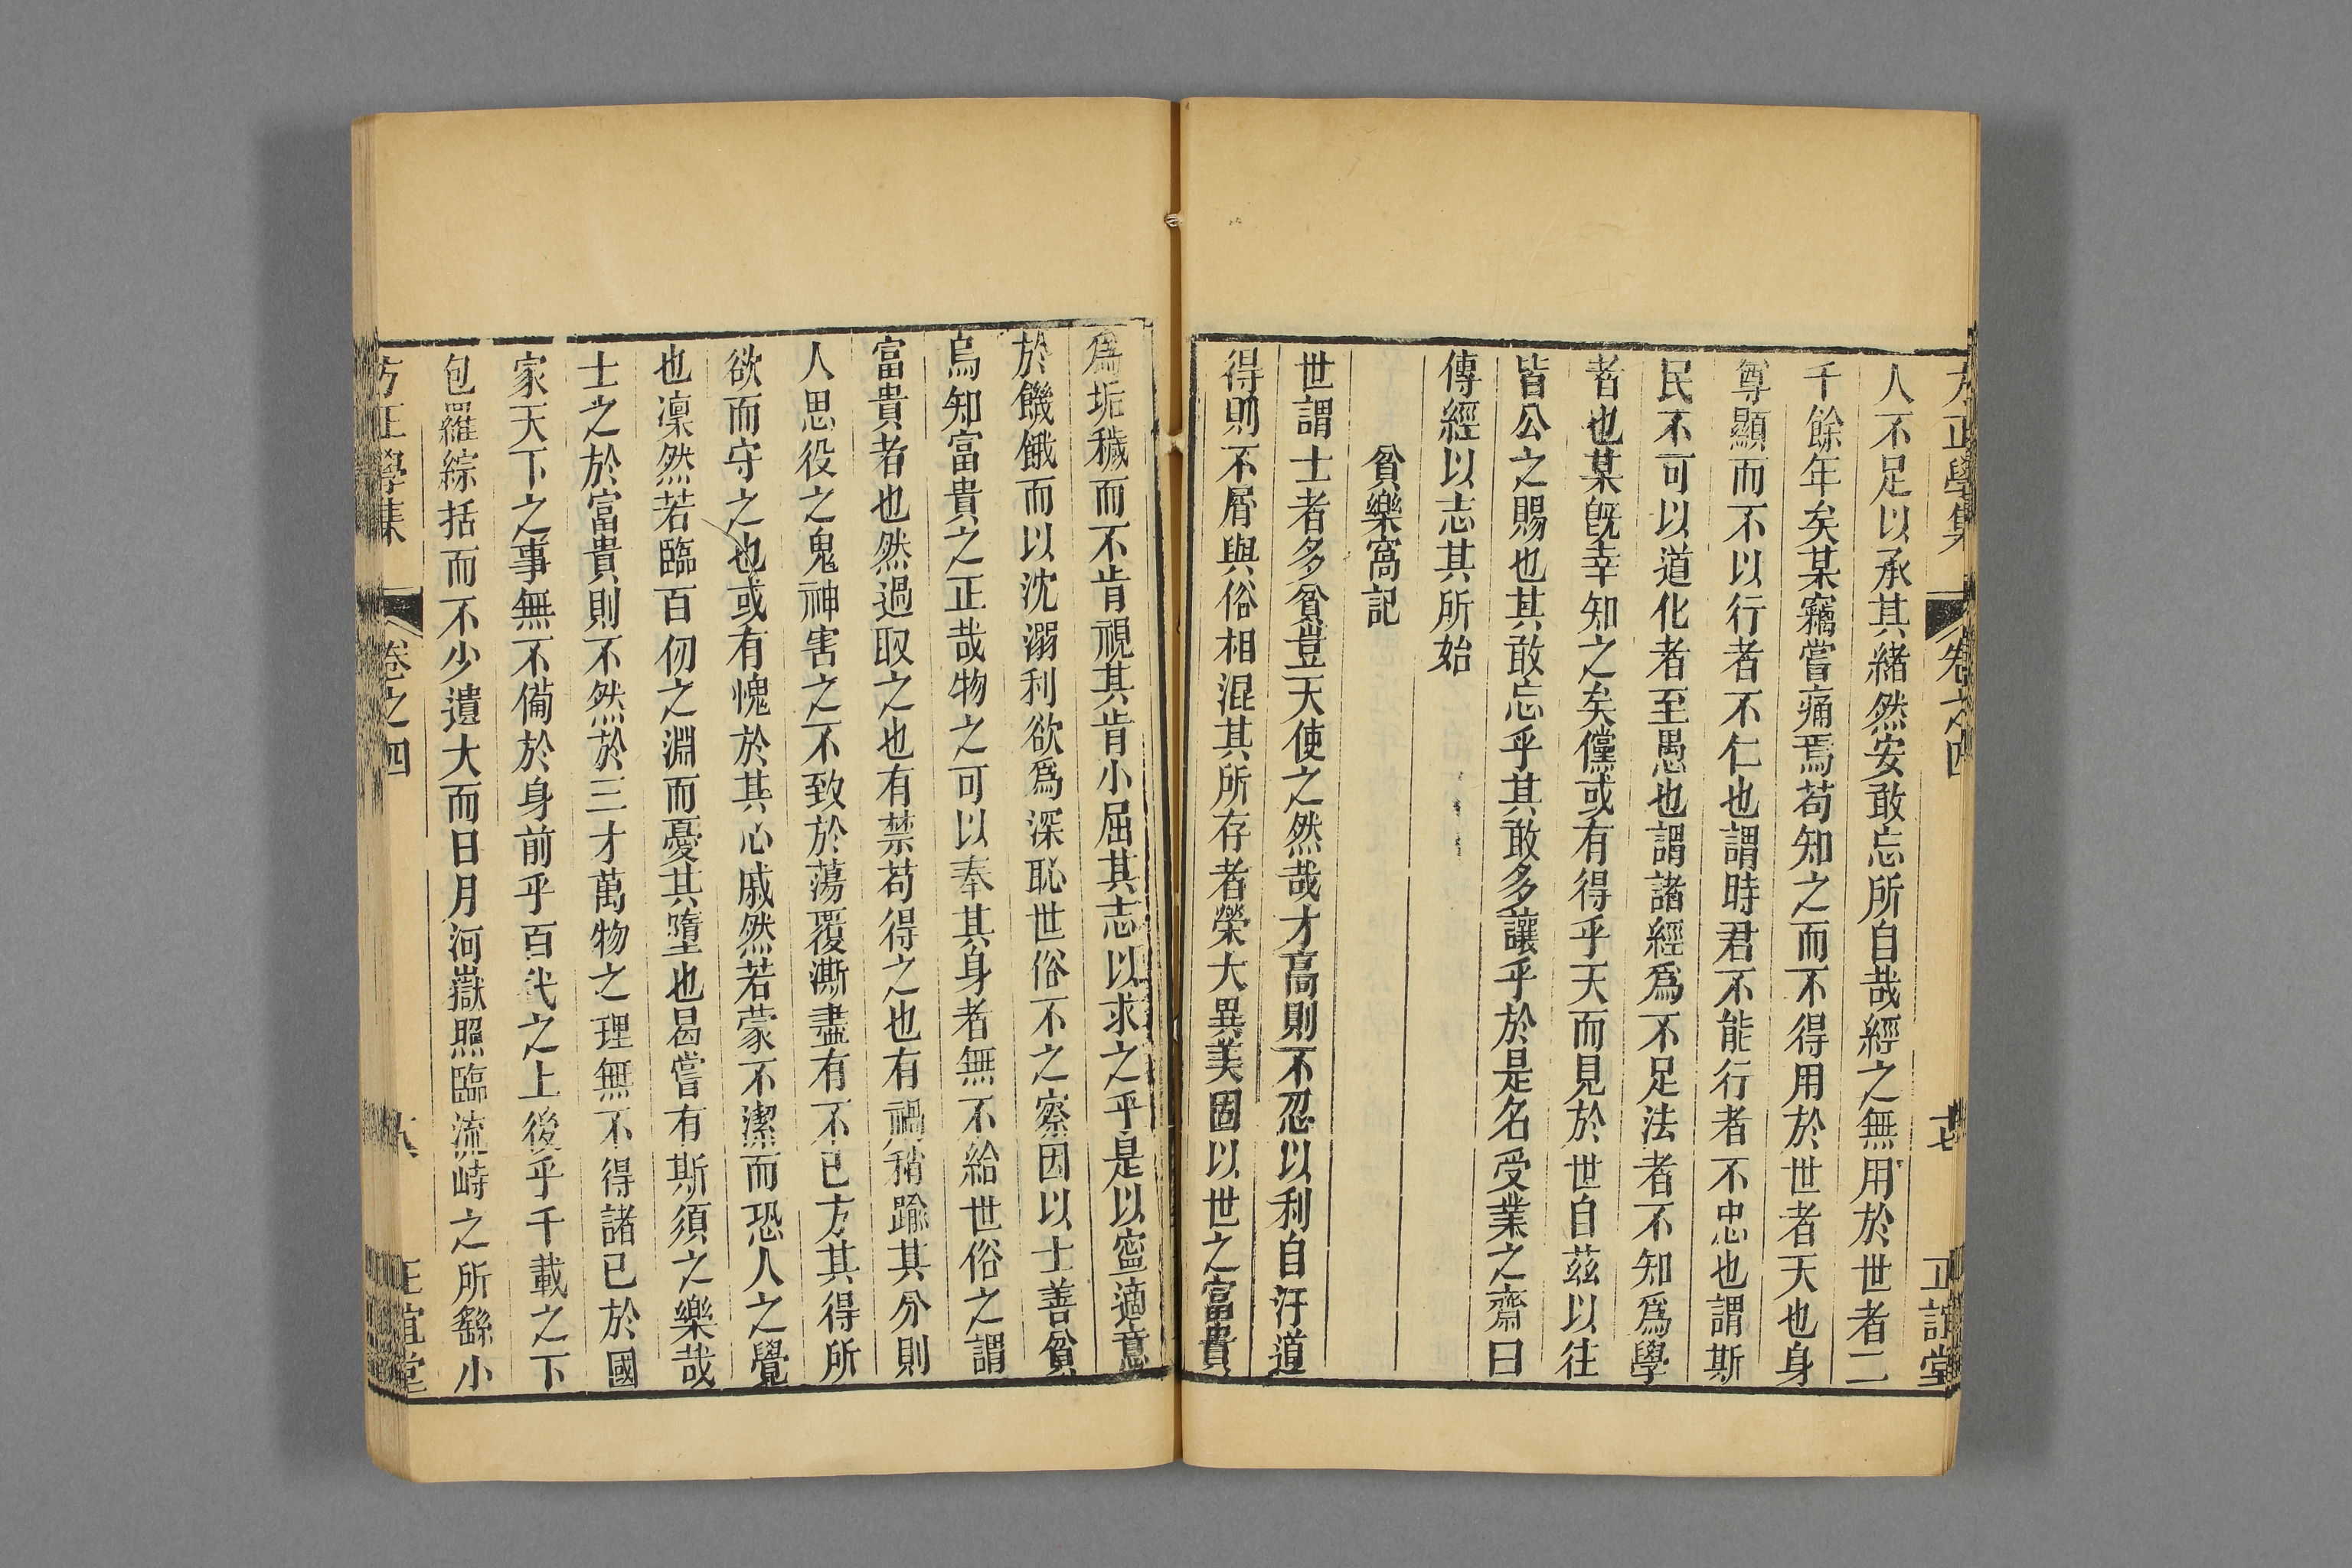 方正學集 卷之四 十七 正誼堂
人不足以承其緒然安敢忘所自哉經之無用於世者二
千餘年矣某竊嘗痛焉苟知之而不得用於世者天也身
尊顯而不以行者不仁也謂時君不能行者不忠也謂斯
民不可以道化者至愚也謂諸經爲不足法者不知爲學
者也某旣幸知之矣儻或有得乎天而見於世自茲以往
皆公之賜也其敢忘乎其敢多讓乎於是名受業之齋曰
傳經以志其所始
貧樂窩記
世謂士者多貧豈天使之然哉才高則不忍以利自汙道
得則不屑與俗相混其所存者榮大異美固以世之富貴
爲垢穢而不肯視其肯小屈其志以求之乎是以寧適意
於饑餓而以沈溺利欲爲深恥世俗不之察因以士善貧
烏知富貴之正哉物之可以奉其身者無不給世俗之謂
富貴者也然過取之也有禁苟得之也有禍稍踰其分則
人思役之鬼神害之不致於蕩覆澌盡有不已方其得所
欲而守之也或有愧於其心戚然若蒙不潔而恐人之覺
也凜然若臨百仞之淵而憂其墮也曷嘗有斯須之樂哉
士之於富貴則不然於三才萬物之理無不得諸已於國
家天下之事無不備於身前乎百代之上後乎千載之下
包羅綜括而不少遺大而日月河嶽照臨流峙之所繇小
方正學集 卷之四 十八 正誼堂